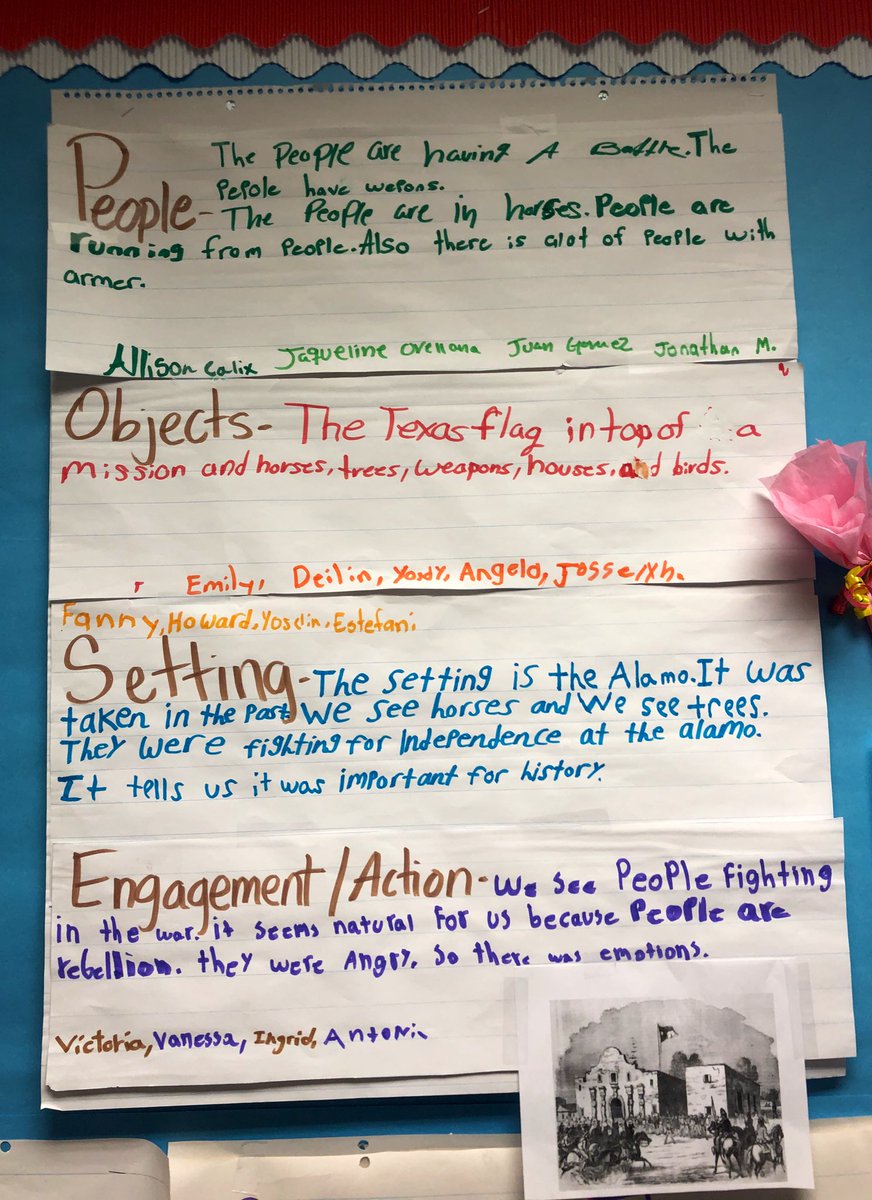 People-
The People are having A Battle. The
Pepole have wepons.
The People are in horses. People are
running from People. Also there is alot of People with
armer.
Allison Calix Jaqueline Orellana Juan Gomez Jonathan M.
Objects- The Texas flag in top of a
Mission and horses, trees, weapons, houses, and birds.
Emily, Deilin, Yordy, Angelo, Josselyh.
Fanny, Howard, Yosclin, Estefani,
Setting- The setting is the Alamo. It was
taken in the Past. We see horses and We see trees.
They were fighting for Independence at the alamo.
It tells us it was important for history.
Engagement/Action- We see PeoPle fighting
in the war. it seems natural for us because People are
rebellion. they were Angry. So there was emotions.
Victoria, Vanessa, Ingrid, Antoni